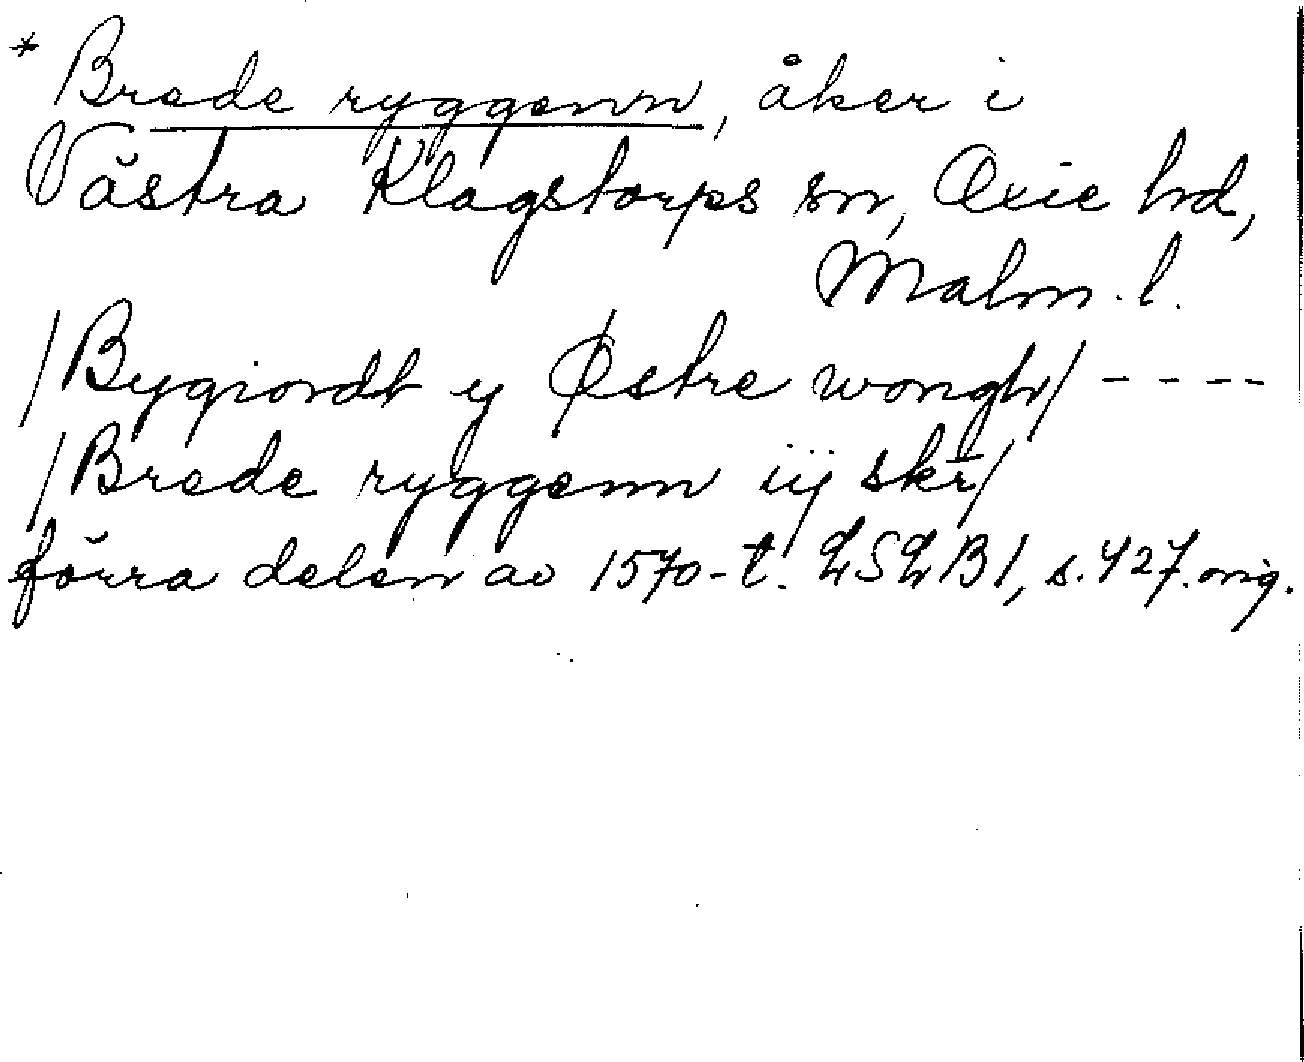 * Brede ryggenn, åker i
Västra Klagstorps sn, Oxie hd,
Malm. l.
/Bygiordt y Østre wongh/ ----
/Brede ryggenn iij skr/
förra delen av 1570-t. LSLB1, s. 427. orig.